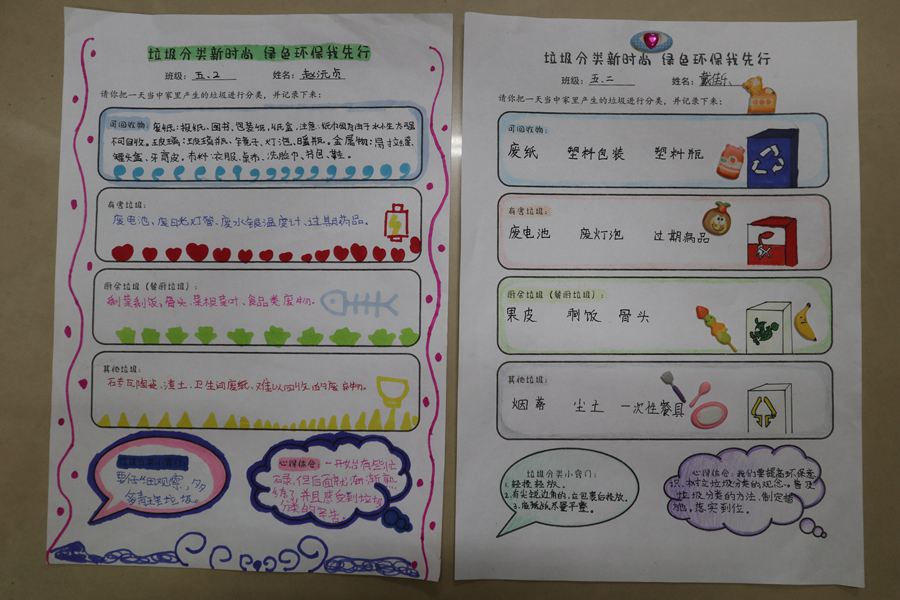 垃圾分类新时尚 绿色环保我先行
班级：五.2 姓名：
请你把一天当中家里产生的垃圾进行分类，并记录下来：
可回收物：废纸：报纸、图书、包装纸、纸盒，注意：纸巾因为由于水小生太强
不可回收。玻璃：玻璃瓶、镜子、灯泡、暖瓶。金属物：易拉罐、
罐头盒、牙膏皮。布料：衣服、桌布、洗脸巾、书包、鞋。
有害垃圾：
废电池、废日光灯管、废水银温度计、过期药品。
厨余垃圾（餐厨垃圾）：
剩菜剩饭、骨头、菜根菜叶、食品类废物。
其他垃圾：
砖瓦陶瓷、渣土、卫生间废纸、难以回收的废弃物。
垃圾分类小窍门：
要仔细观察，多
多清理垃圾。
心得体会：一开始有些忙
碌，但后面就渐渐熟
练了，并且感受到垃圾
分类的
垃圾分类新时尚 绿色环保我先行
班级：五.二 姓名：戴
请你把一天当中家里产生的垃圾进行分类，并记录下来：
可回收物：
废纸 塑料包装 塑料瓶
有害垃圾：
废电池 废灯泡 过期药品
厨余垃圾（餐厨垃圾）：
果皮 剩饭 骨头
其他垃圾：
烟蒂 尘土 一次性餐具
垃圾分类小窍门：
1.轻投轻放。
2.有尖锐边角的，应包裹后投放。
3.废纸张尽量平整。
心得体会：我们要提高环保意
识，树立垃圾分类的观念。普及
垃圾分类的方法，制定措
施，落实到位。